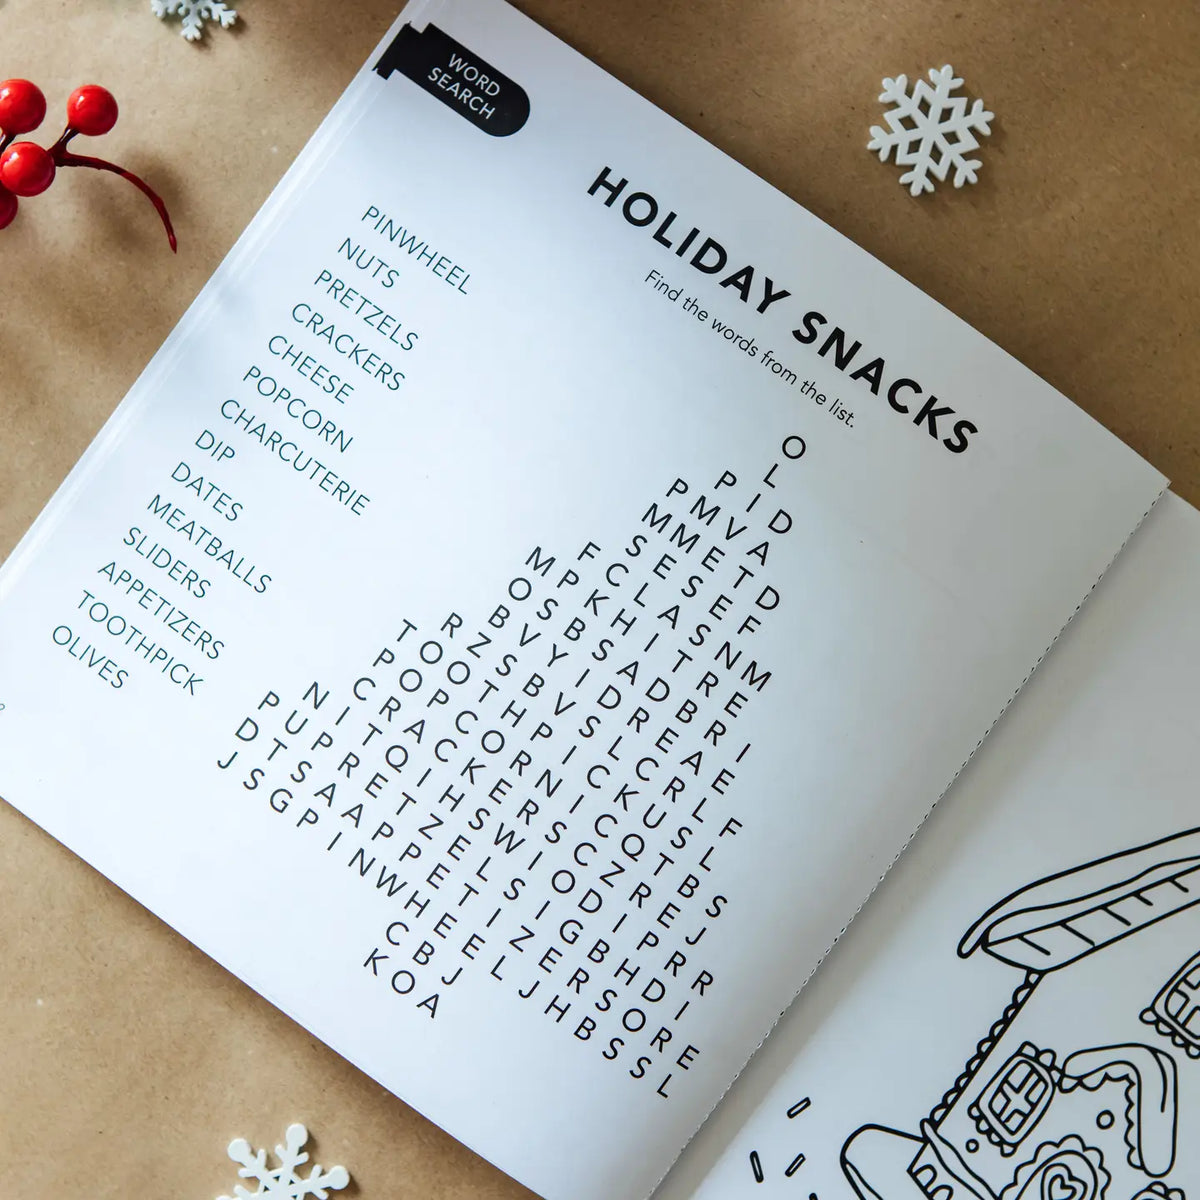 WORD
SEARCH
HOLIDAY SNACKS
Find the words from the list.
PINWHEEL
NUTS
PRETZELS
CRACKERS
CHEESE
POPCORN
CHARCUTERIE
DIP
DATES
MEATBALLS
SLIDERS
APPETIZERS
TOOTHPICK
OLIVES
O
L
P I D
P M V A
M M E T D
S E S E F
F C L A S N M
M P K H I T R E
O S B S A D B R I
B V Y I D R E A E
R Z S B V S L C R L F
T O O T H P I C K U S L
P O P C O R N I C Q T B S
C R A C K E R S C Z R E J
N I T Q I H S W I O D I P R R
P U P R E T Z E L S I G B H D I
D T S A A P P E T I Z E R S O R E
J S G P I N W H E E L J H B S S L
C B J
K O A